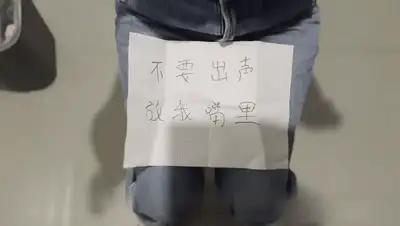 不要出声
放我嘴里